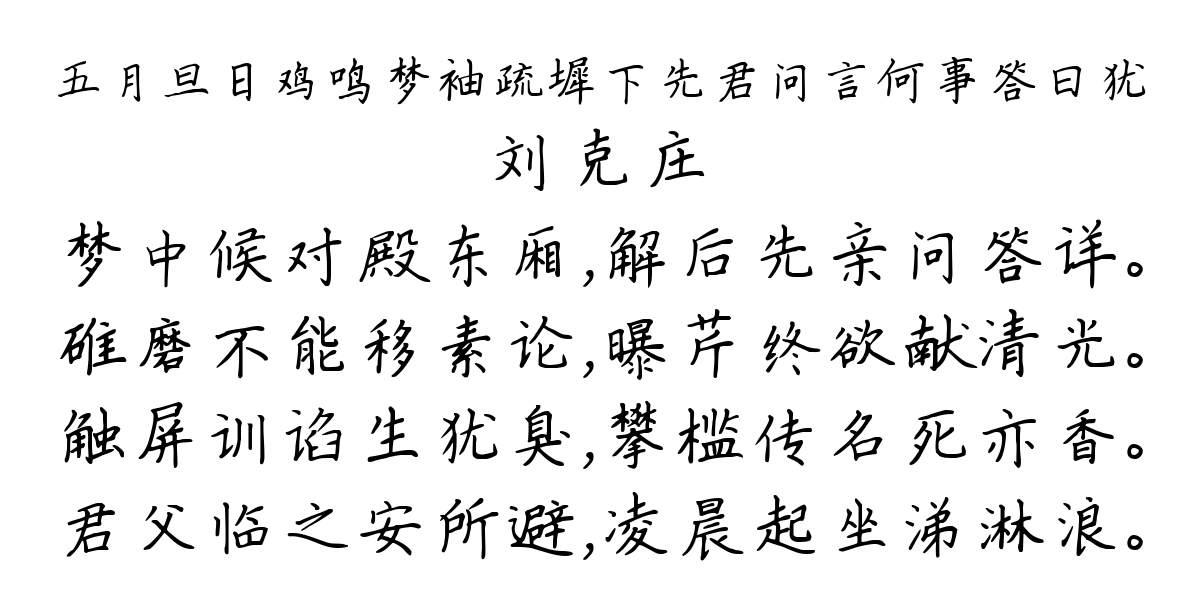 五月旦日鸡鸣梦袖疏墀下先君问言何事答曰犹
刘克庄
梦中候对殿东厢,解后先亲问答详。
碓磨不能移素论,曝芹终欲献清光。
触屏训谄生犹臭,攀槛传名死亦香。
君父临之安所避,凌晨起坐涕淋浪。